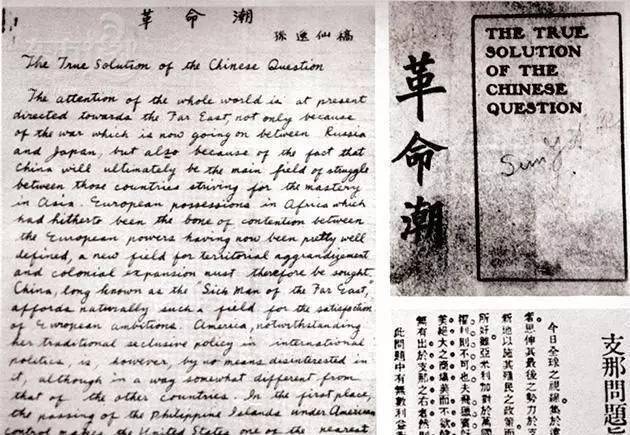 革命潮
孫逸仙稿
The True Solution of the Chinese Question
The attention of the whole world is at present
directed towards the Far East, not only because
of the war which is now going on between Russia
and Japan, but also because of the fact that
China will ultimately be the main field of struggle
between those countries striving for the mastery
in Asia. European possessions in Africa which
had hitherto been the bone of contention between
the European powers having now been pretty well
defined, a new field for territorial aggrandizement
and colonial expansion must therefore be sought.
China, long known as the "Sick Man of the Far East,"
affords naturally such a field for the satisfaction
of European ambitions. America, notwithstanding
her traditional seclusive policy in international
politics, is, however, by no means disinterested in
it, although in a way somewhat different from
that of the other countries. In the first place,
the passing of the Philippine Islands under American
control makes the United States one of the nearest
革命潮
THE TRUE
SOLUTION
OF THE
CHINESE
QUESTION
Sun Y
支那問題
今日全球之視線集於遠
者思伸其最後之勢力於支
新地以施其殖民之政策而
所好雖亞米利加對於萬國
權利則不可也夫飛獵賓
美絕大之商場美而不欲輸
無有出於支那之右者然則
此問題中有無數利益